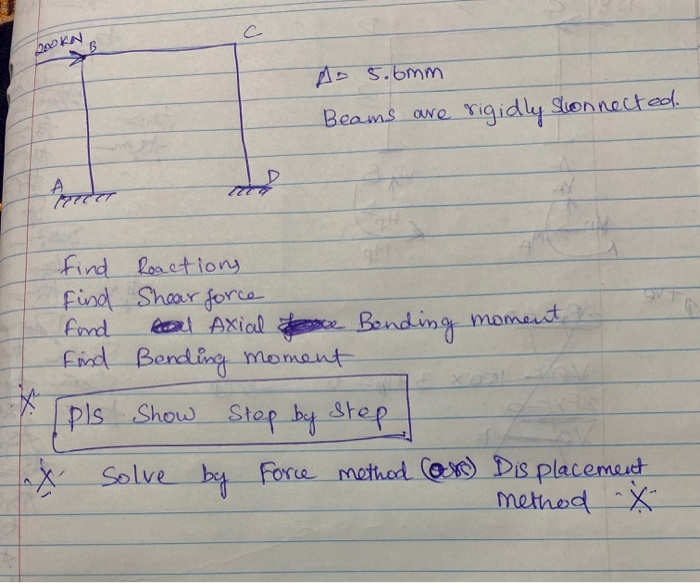 200KN B C
Δ= 5.6mm
Beams are rigidly connected.
A D
Find Reactions
Find Shear force
Find Axial Bending moment
Find Bending moment
Pls Show Step by Step
Solve by Force method (or) Displacement
method